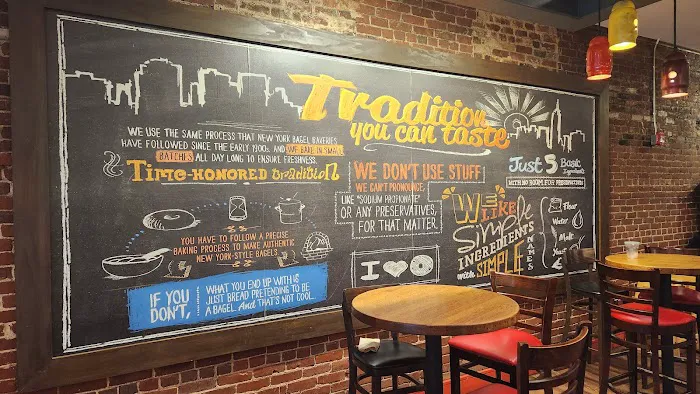 Tradition
you can taste
WE USE THE SAME PROCESS THAT NEW YORK BAGEL BAKERIES
HAVE FOLLOWED SINCE THE EARLY 1900s. AND WE BAKE IN SMALL
BATCHES ALL DAY LONG TO ENSURE FRESHNESS.
Time-HONORED tradition
YOU HAVE TO FOLLOW A PRECISE
BAKING PROCESS TO MAKE AUTHENTIC
NEW YORK-STYLE BAGELS.
IF YOU
DON'T,
WHAT YOU END UP WITH IS
JUST BREAD PRETENDING TO BE
A BAGEL. And THAT'S NOT COOL.
WE DON'T USE STUFF
WE CAN'T PRONOUNCE,
LIKE "SODIUM PROPIONATE"
OR ANY PRESERVATIVES,
FOR THAT MATTER.
I
Just 5 Basic
Ingredients
WITH NO ROOM FOR PRESERVATIVES
We
LIKE
Simple
INGREDIENTS
with SIMPLE
NAMES
Flour
Water
Malt